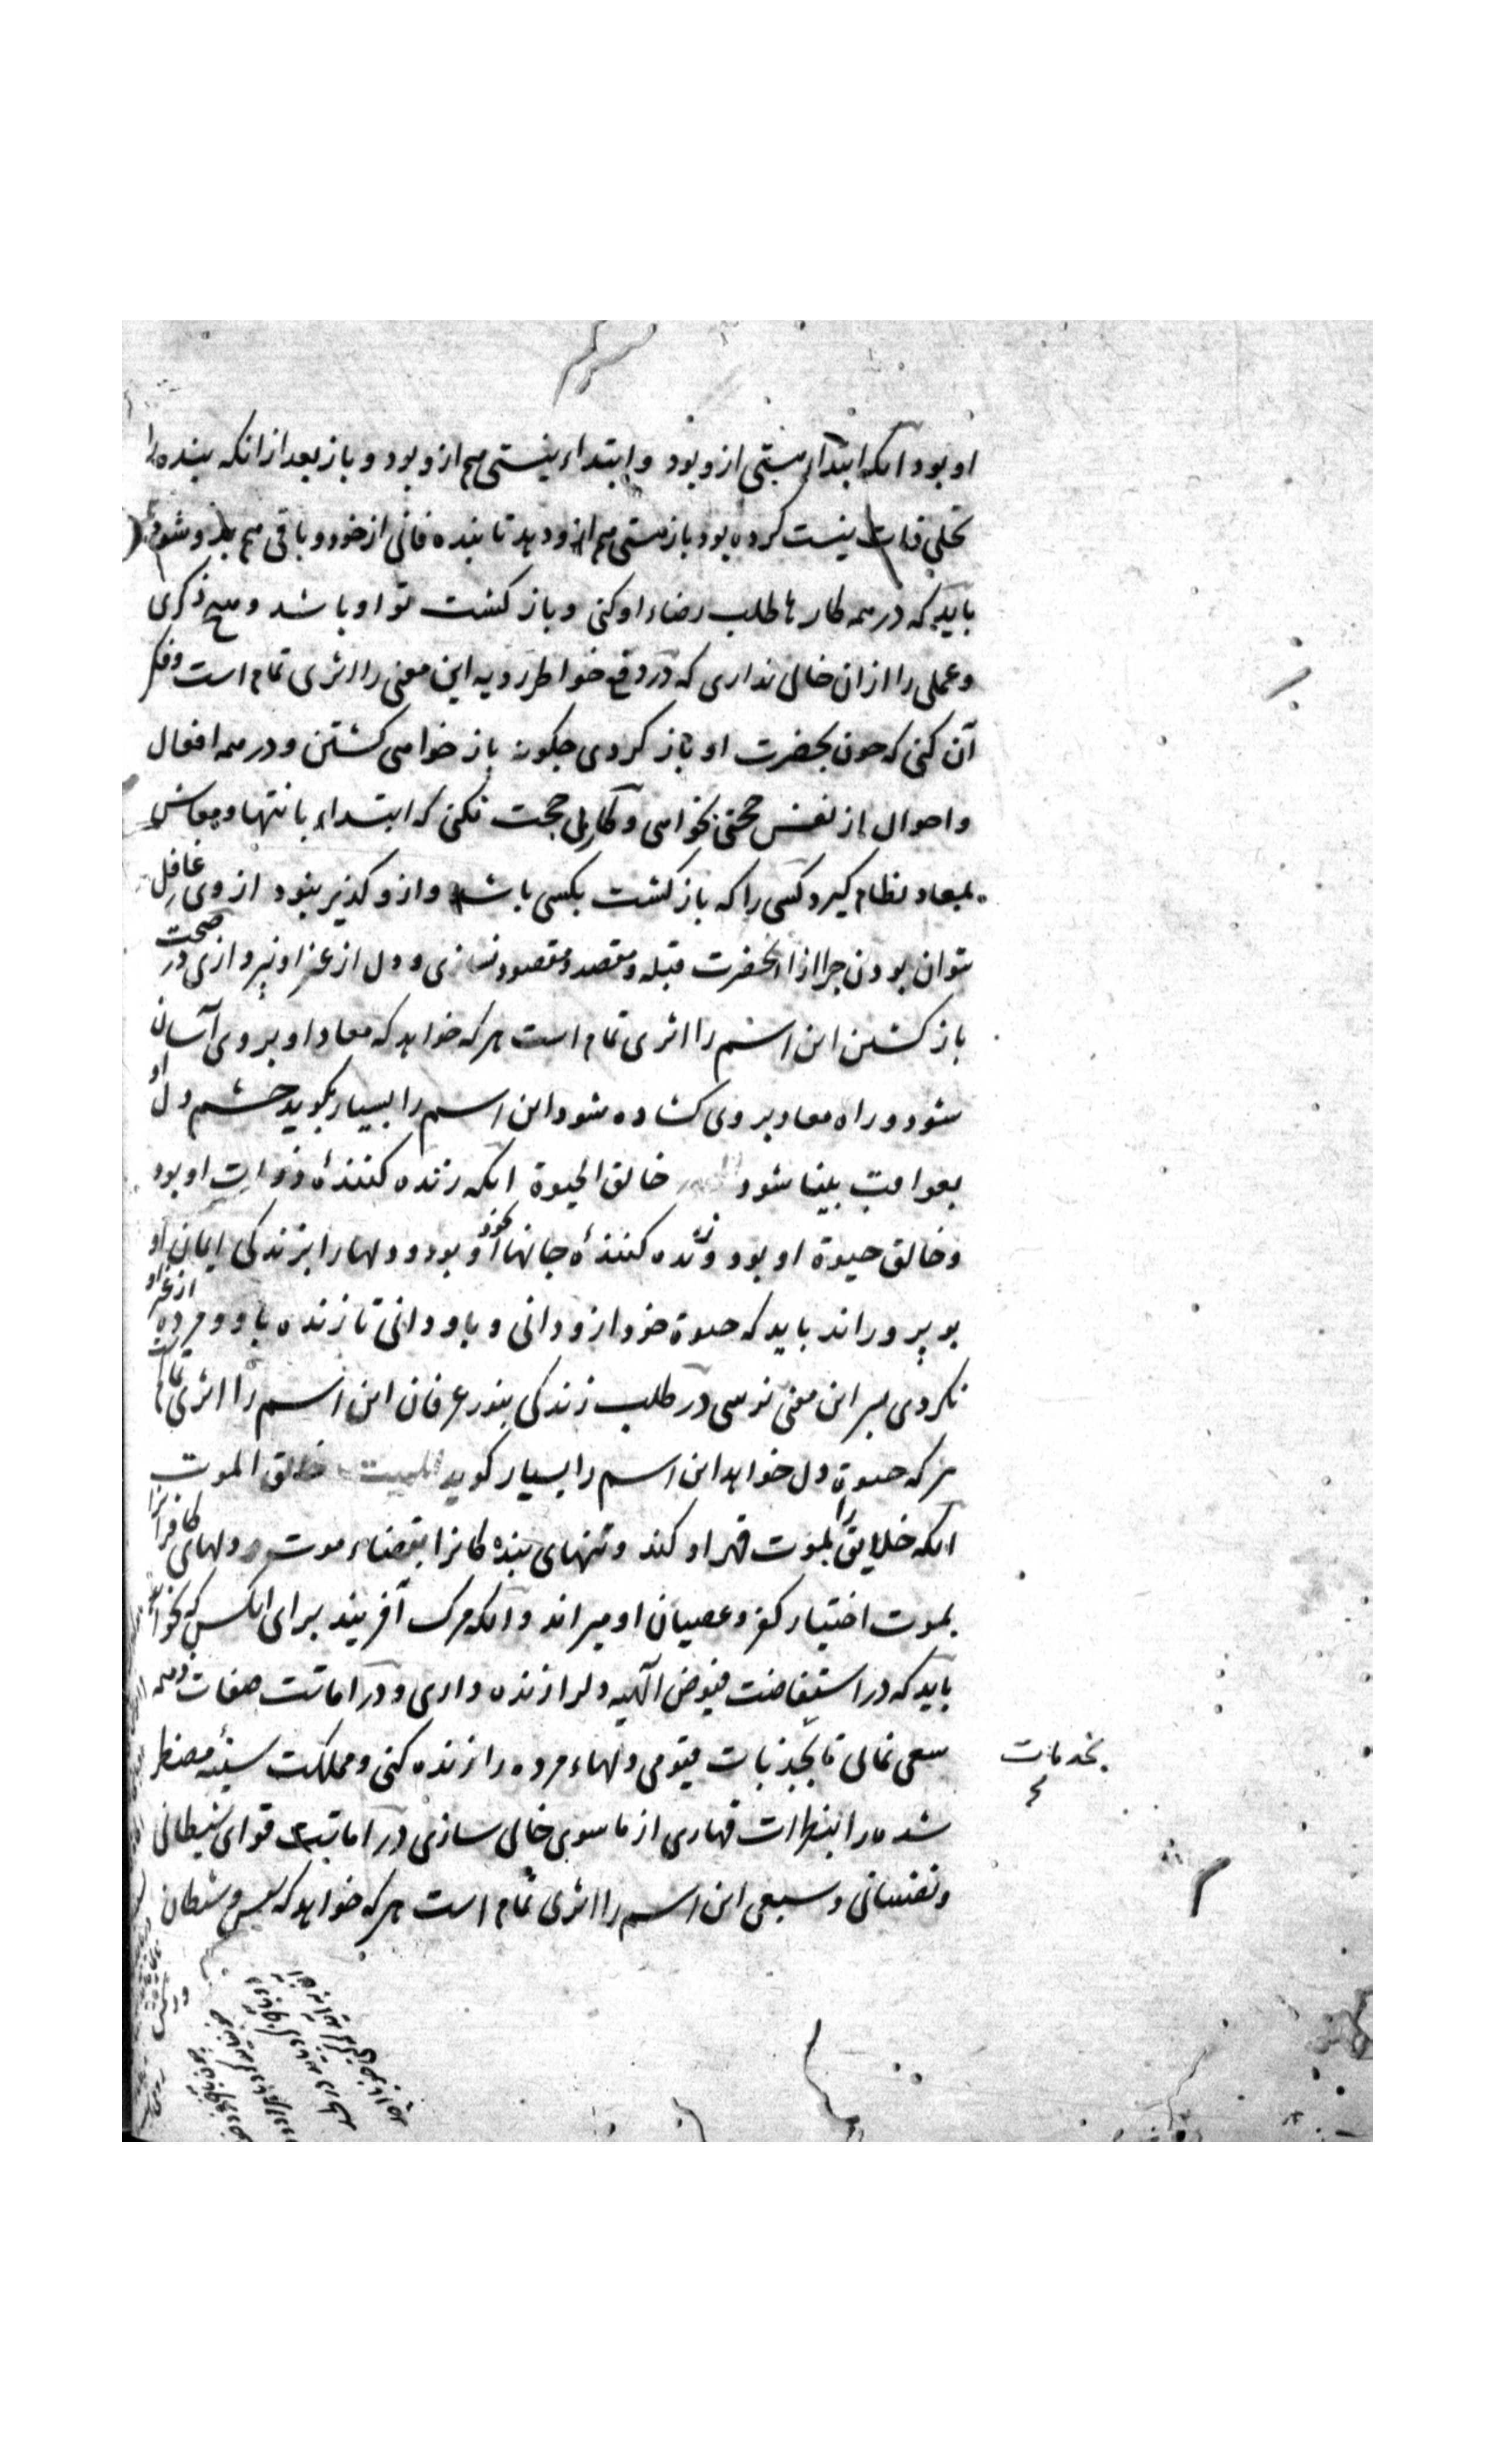 او بود آنکه ابتداء هستی ازو بود و ابتداء نیستی هم ازو بود و باز بعد از انکه بنده را
تجلی ذات نیست کرده بود باز هستی هم ازو دید تا بنده فانی از خود و باقی هم بدو شود
باید که در همه کارها طلب رضاء او کنی و باز کشت تو او باشد و هیچ ذکری
و عملی را ازان خالی نداری که در دفع خواطر رویه این معنی را اثری تمام است و فکر
آن کنی که چون بحضرت او باز کردی چکونه باز خواهی کشتن و در همه افعال
و احوال از نفس حجتی نخواهی و کار بی حجت نکنی که ابتداء با نتها و معاش
بمعاد نظام کیرد کسی را که باز کشت بکسی باشد و ازو کذیر نبود از وی غافل
نتوان بودن چرا از آنحضرت قبله و مقصد و مقصود نسازی و دل از غیر او نپردازی در صحت
باز کشتن این اسم را اثری تمام است هر که خواهد که معاد او بر وی آسان
شود و راه معاد بر وی کشاده شود این اسم را بسیار بکوید چشم دل او
بعواقب بینا شود خالق الحیوة انکه زنده کنندهٔ ذوات او بود
و خالق حیوة او بود و زنده کنندهٔ جانها او بود و دلها را بزندکی ایمان او
بپروراند باید که حیوة خود ازو دانی و باو دانی تا زنده باو و مرده از غیر او
نکردی بسر این معنی نرسی در طلب زندکی بنور عرفان این اسم را اثری تمام است
هر که حیوة دل خواهد این اسم را بسیار کوید الممیت خالق الموت
انکه خلایق را بموت قهر او کند و تنهای بنده کانرا بقضاء موت و دلهای کافرانرا
بموت اختیار کفر و عصیان او میراند و انکه مرک آفریند برای انکس که خواهد
باید که در استیفاضت فیوض الهیه دلرا زنده داری و در اماتت صفات ذمیمه
سعی نمائی تا بجذبات قیومی دلهاء مرده را زنده کنی و مملکت سینهٔ مضطر
شده را بنظرات قهاری از ماسوی خالی سازی در اماتت قوای شیطانی
و نفسانی و سبعی این اسم را اثری تمام است هر که خواهد که شیطان
بخدمات